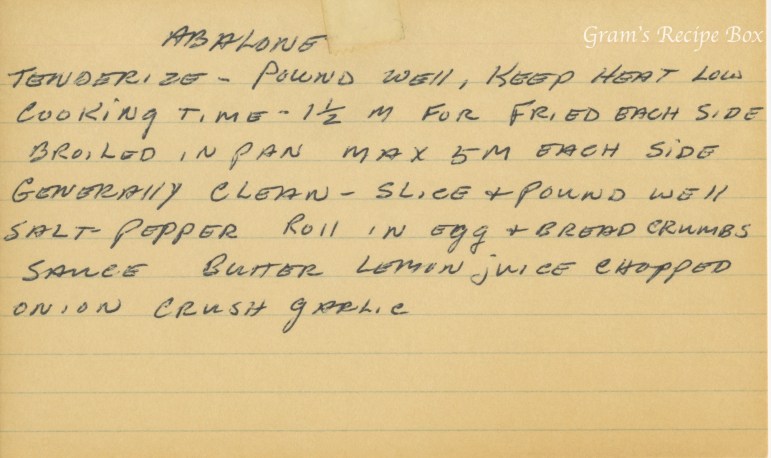 Gram's Recipe Box
ABALONE
TENDERIZE - POUND WELL, KEEP HEAT LOW
COOKING TIME - 1 1/2 M FOR FRIED EACH SIDE
BROILED IN PAN MAX 5M EACH SIDE
GENERALLY CLEAN - SLICE + POUND WELL
SALT - PEPPER ROLL IN EGG + BREAD CRUMBS
SAUCE BUTTER LEMON JUICE CHOPPED
ONION CRUSH GARLIC